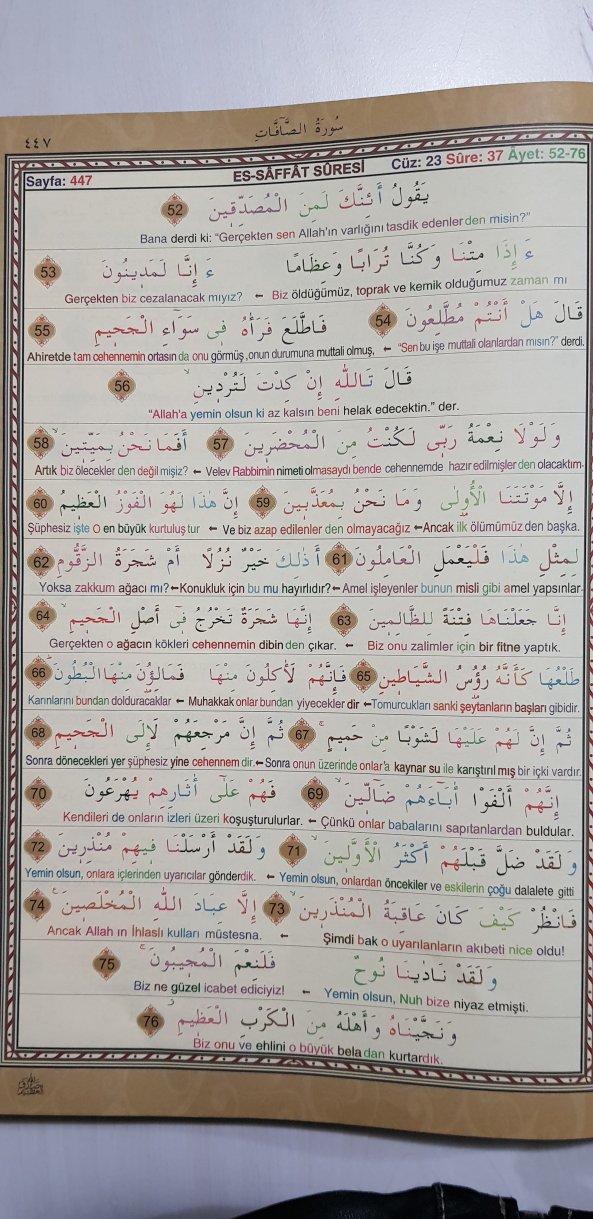 سُورَةُ الصَّافَّاتِ
٤٤٧
Sayfa: 447 ES-SÂFFÂT SÛRESİ Cüz: 23 Sûre: 37 Âyet: 52-76
يَقُولُ أَئِنَّكَ لَمِنَ الْمُصَدِّقِينَ 52
Bana derdi ki: “Gerçekten sen Allah'ın varlığını tasdik edenlerden misin?”
ءَ إِذَا مِتْنَا وَ كُنَّا تُرَابًا وَ عِظَامًا ءَ إِنَّا لَمَدِينُونَ 53
Gerçekten biz cezalanacak mıyız? ← Biz öldüğümüz, toprak ve kemik olduğumuz zaman mı
قَالَ هَلْ أَنْتُمْ مُطَّلِعُونَ 54 فَاطَّلَعَ فَرَآهُ فِى سَوَآءِ الْجَحِيمِ 55
Ahiretde tam cehennemin ortasın da onu görmüş ,onun durumuna muttali olmuş, ← “Sen bu işe muttali olanlardan mısın?” derdi.
قَالَ تَاللهِ إِنْ كِدْتَ لَتُرْدِينِ 56
“Allah'a yemin olsun ki az kalsın beni helak edecektin.” der.
وَ لَوْ لَا نِعْمَةُ رَبِّى لَكُنْتُ مِنَ الْمُحْضَرِينَ 57 أَفَمَا نَحْنُ بِمَيِّتِينَ 58
Artık biz ölecekler den değil mişiz? ← Velev Rabbimin nimeti olmasaydı bende cehennemde hazır edilmişler den olacaktım.
إِلَّا مَوْتَتَنَا الْأُولَى وَ مَا نَحْنُ بِمُعَذَّبِينَ 59 إِنَّ هٰذَا لَهُوَ الْفَوْزُ الْعَظِيمُ 60
Şüphesiz işte O en büyük kurtuluş tur ← Ve biz azap edilenler den olmayacağız ←Ancak ilk ölümümüz den başka.
لِمِثْلِ هٰذَا فَلْيَعْمَلِ الْعَامِلُونَ 61 أَذٰلِكَ خَيْرٌ نُزُلًا أَمْ شَجَرَةُ الزَّقُّومِ 62
Yoksa zakkum ağacı mı?←Konukluk için bu mu hayırlıdır?←Amel işleyenler bunun misli gibi amel yapsınlar.
إِنَّا جَعَلْنَاهَا فِتْنَةً لِلظَّالِمِينَ 63 إِنَّهَا شَجَرَةٌ تَخْرُجُ فِى أَصْلِ الْجَحِيمِ 64
Gerçekten o ağacın kökleri cehennemin dibin den çıkar. ← Biz onu zalimler için bir fitne yaptık.
طَلْعُهَا كَأَنَّهُ رُؤُسُ الشَّيَاطِينِ 65 فَإِنَّهُمْ لَأٰكِلُونَ مِنْهَا فَمَالِؤُنَ مِنْهَا الْبُطُونَ 66
Karınlarını bundan dolduracaklar ← Muhakkak onlar bundan yiyecekler dir ←Tomurcukları sanki şeytanların başları gibidir.
ثُمَّ إِنَّ لَهُمْ عَلَيْهَا لَشَوْبًا مِنْ حَمِيمٍ 67 ثُمَّ إِنَّ مَرْجِعَهُمْ لَإِلَى الْجَحِيمِ 68
Sonra dönecekleri yer şüphesiz yine cehennem dir.←Sonra onun üzerinde onlar'a kaynar su ile karıştırıl mış bir içki vardır.
إِنَّهُمْ أَلْفَوْا أٰبَآءَهُمْ ضَآلِّينَ 69 فَهُمْ عَلٰٓى أٰثَارِهِمْ يُهْرَعُونَ 70
Kendileri de onların izleri üzeri koşuşturulurlar. ← Çünkü onlar babalarını sapıtanlardan buldular.
وَ لَقَدْ ضَلَّ قَبْلَهُمْ أَكْثَرُ الْأَوَّلِينَ 71 وَ لَقَدْ أَرْسَلْنَا فِيهِمْ مُنْذِرِينَ 72
Yemin olsun, onlara içlerinden uyarıcılar gönderdik. ← Yemin olsun, onlardan öncekiler ve eskilerin çoğu dalalete gitti
فَانْظُرْ كَيْفَ كَانَ عَاقِبَةُ الْمُنْذَرِينَ 73 إِلَّا عِبَادَ اللهِ الْمُخْلَصِينَ 74
Ancak Allah ın İhlaslı kulları müstesna. ← Şimdi bak o uyarılanların akıbeti nice oldu!
وَ لَقَدْ نَادٰينَا نُوحٌ فَلَنِعْمَ الْمُجِيبُونَ 75
Biz ne güzel icabet ediciyiz! ← Yemin olsun, Nuh bize niyaz etmişti.
وَ نَجَّيْنَاهُ وَ أَهْلَهُ مِنَ الْكَرْبِ الْعَظِيمِ 76
Biz onu ve ehlini o büyük bela dan kurtardık.